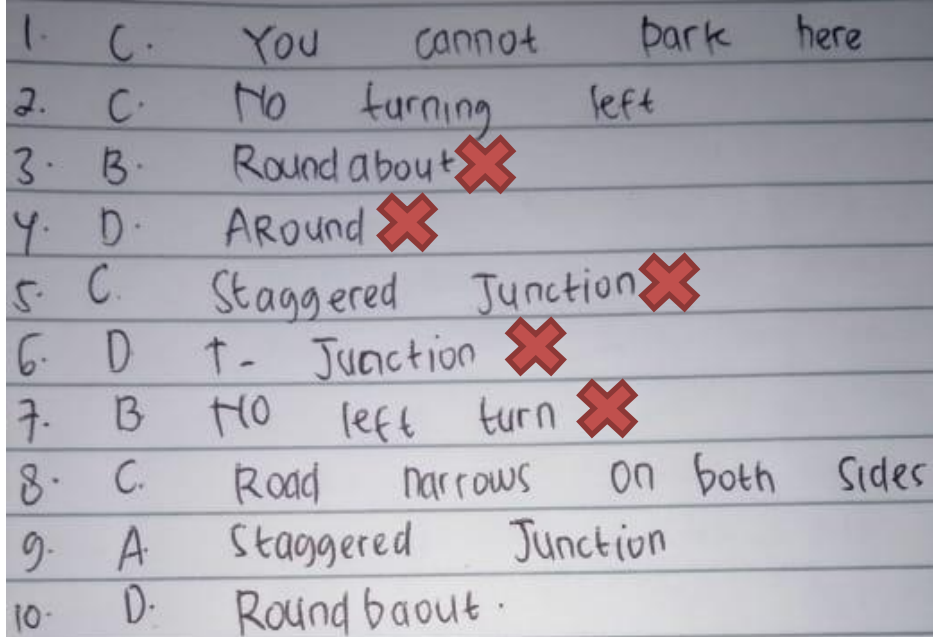 1. C. You cannot park here
2. C. No turning left
3. B. Roundabout
4. D. ARound
5. C. Staggered Junction
6. D T- Junction
7. B No left turn
8. C. Road narrows on both Sides
9. A. Staggered Junction
10. D. Roundbaout.